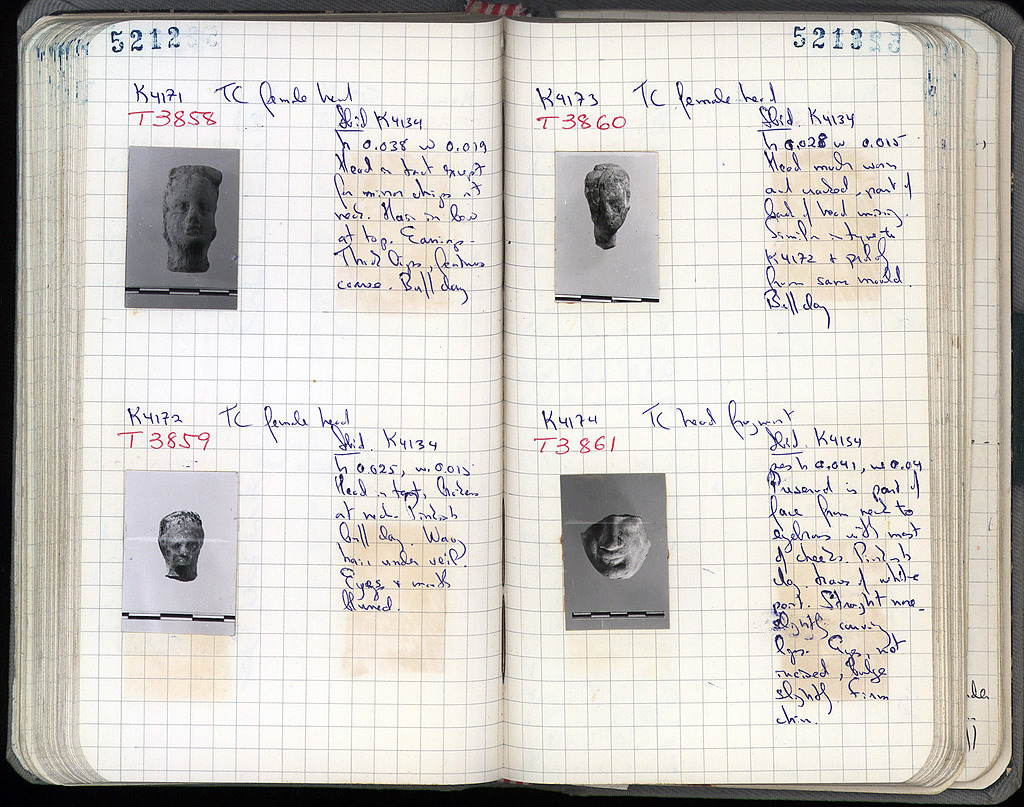 5212
K4171 TC female head
T3858
Ibid K4134
h 0.038 w 0.019
Head intact except
for minor chips at
neck. Hair in bow
at top. Earrings.
Thick lips, features
coarse. Buff clay
K4172 TC female head
T3859
Ibid. K4134
h 0.025, w. 0.015
Head intact, broken
at neck. Pinkish
buff clay. Wavy
hair under veil.
Eyes + mouth
blurred.
5213
K4173 TC female head
T3860
Ibid. K4134
h 0.028 w 0.015
Head much worn
and cracked, part of
back of head missing.
Similar in type to
K4172 +
from same mould.
Buff clay
K4174 TC head fragment
T3861
Ibid. K4134
pres h 0.041, w 0.04
Preserved is part of
face from neck to
eyebrows with most
of cheeks. Pinkish
clay traces of white
paint. Straight nose
slightly curving
lips. Eyes, not
incised, bulge
slightly. Firm
chin.